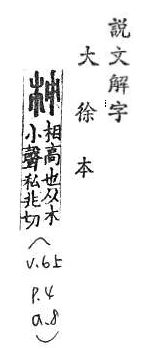 説文解字
大徐本
𣏌相高也从木
小聲私兆切
(v.65
p.4
a.8)